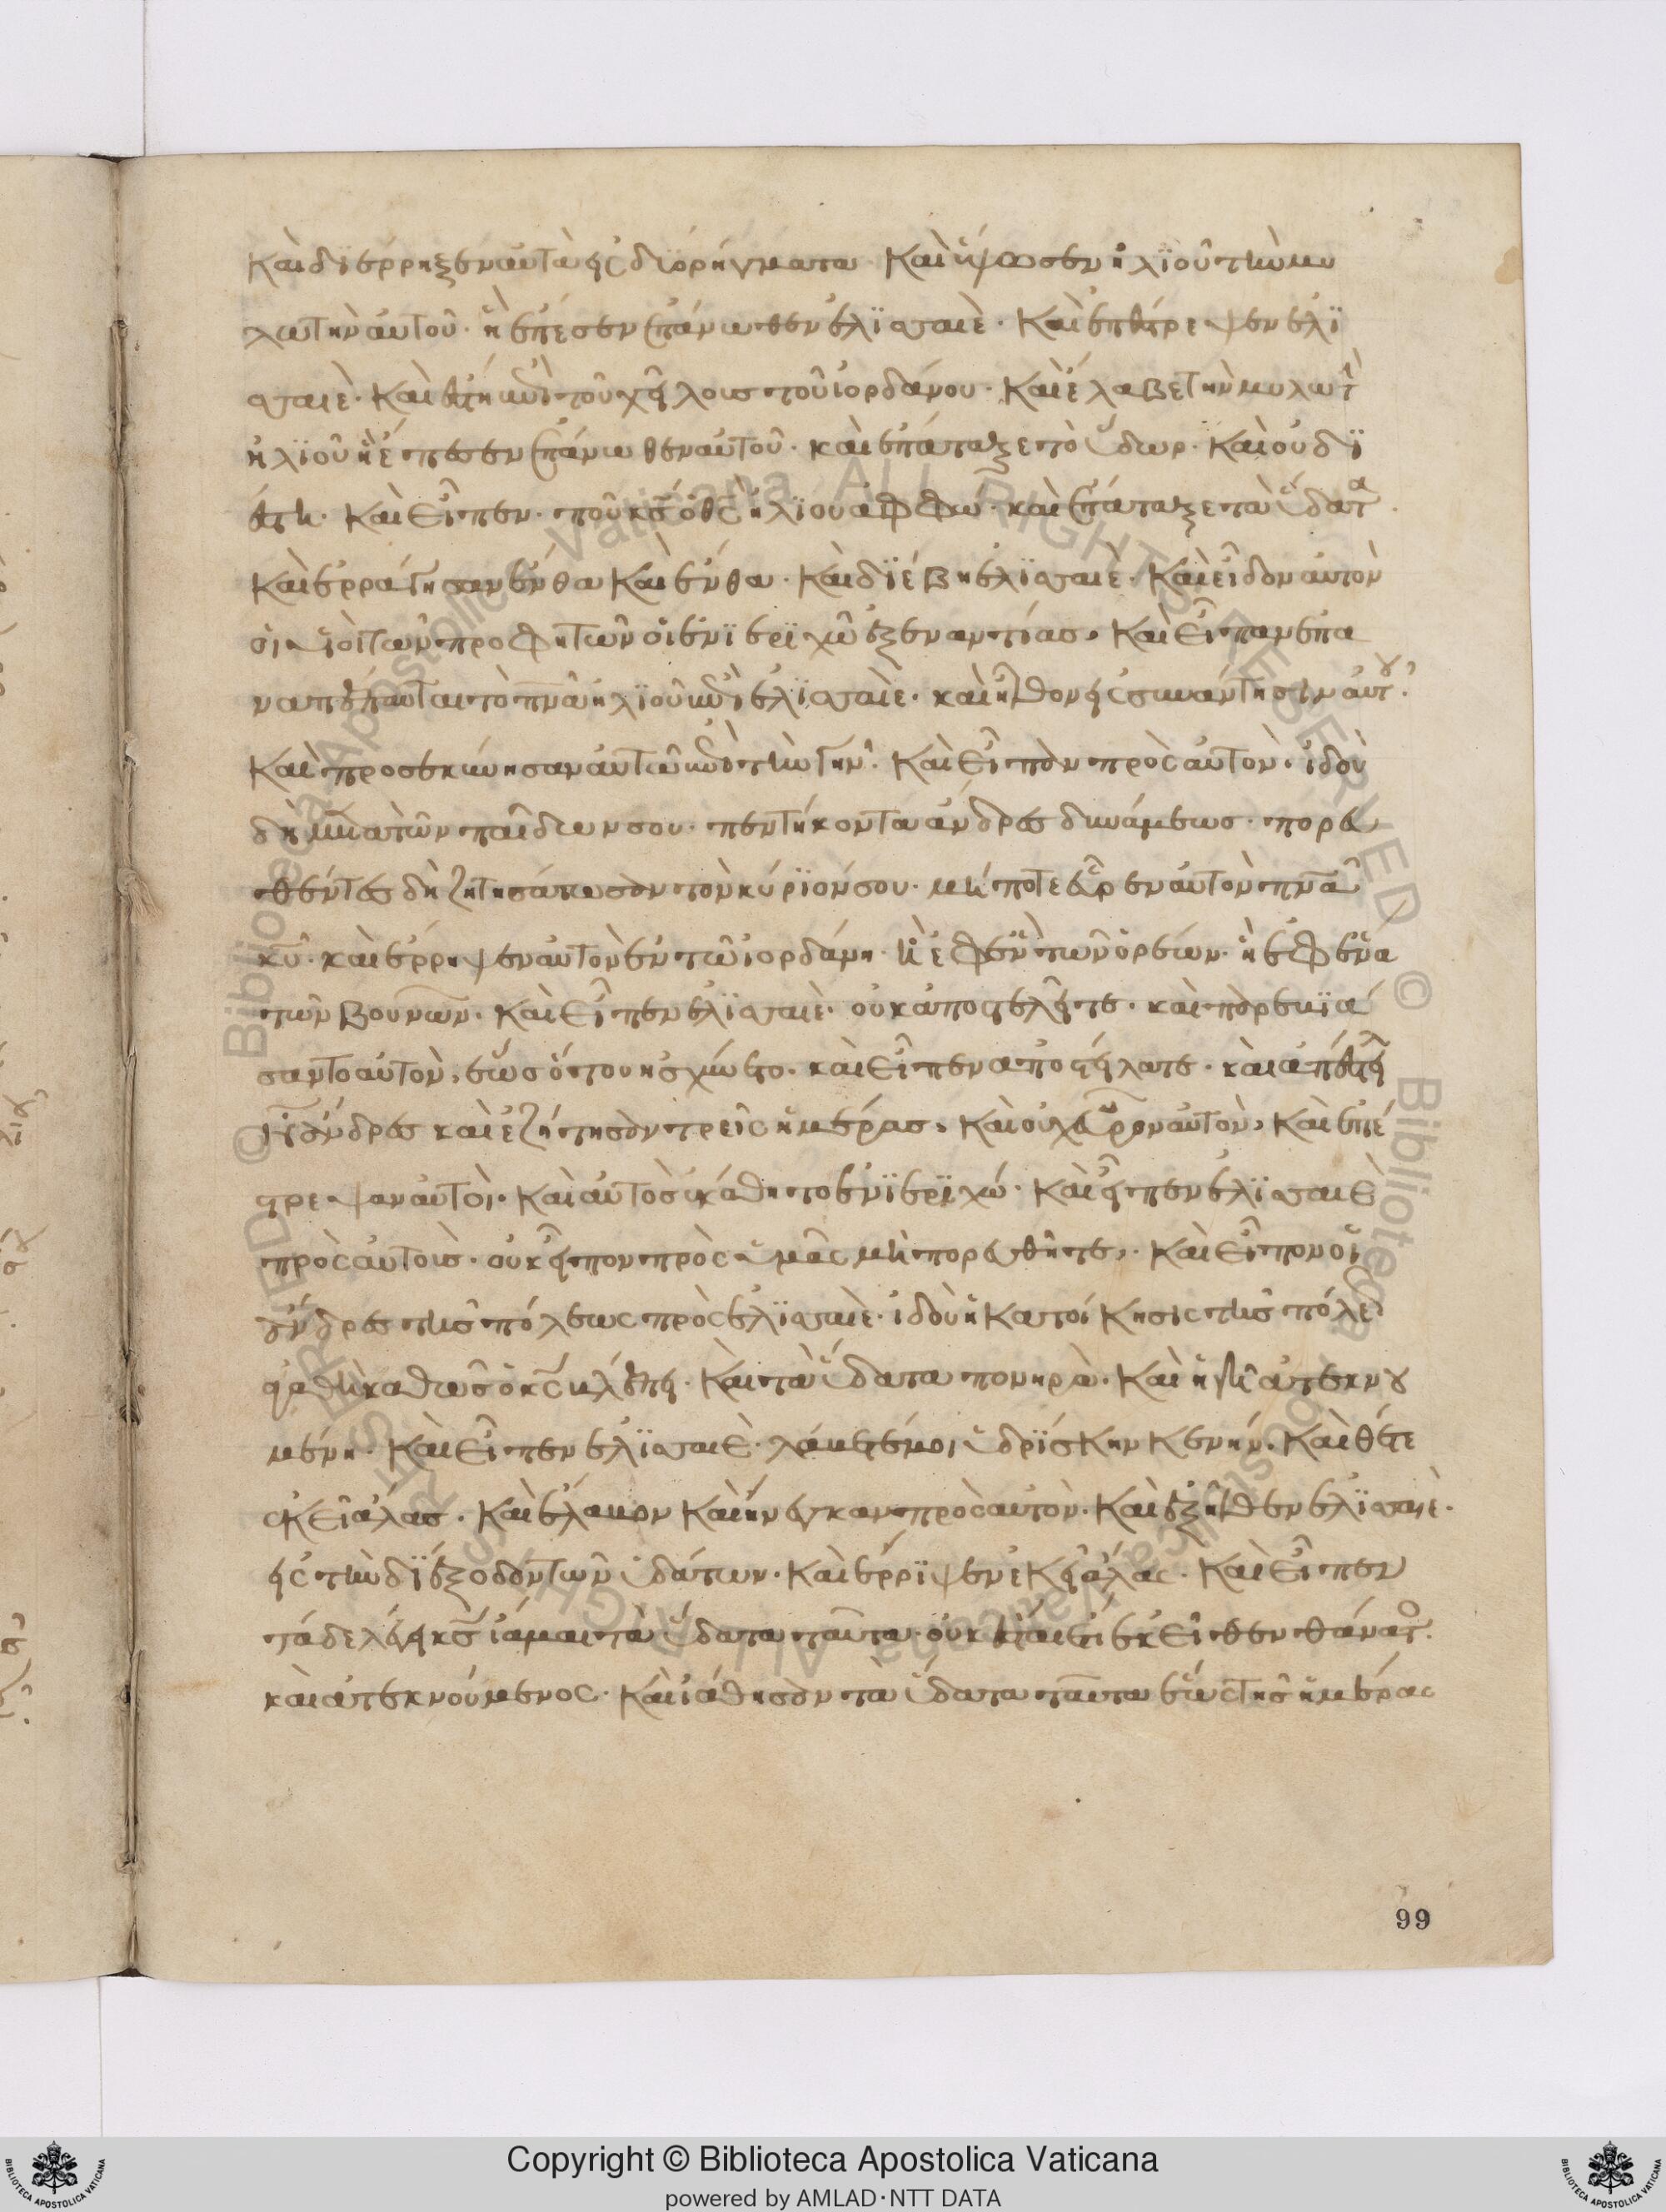 καὶ διέρρηξεν αὐτὰ εἰς διορήγματα. καὶ ὕψωσεν ἡλϊοῦ τὴν μυ
λωτὴν αὐτοῦ. ἣ ἔπεσεν ἐπάνωθεν ἐλϊσσαιὲ. καὶ ἐπέστρεψεν ἐλϊ
σσαιὲ. καὶ ἔστη ἐπὶ τοῦ χείλους τοῦ ἰορδάνου. καὶ ἔλαβε τὴν μυλωτ
ἡλϊοῦ ἣ ἔπεσεν ἐπάνωθεν αὐτοῦ. καὶ ἐπάταξε τὸ ὕδωρ. καὶ οὐ δϊ
έστη. καὶ εἶπεν. ποῦ κς ὁ θς ἡλϊου ἀφφώ. καὶ ἐπάταξε τὰ ὕδατα.
καὶ ἐρράγησαν ἔνθα καὶ ἔνθα. καὶ δϊέβη ἐλϊσσαιὲ. καὶ εἶδον αὐτὸν
οἱ υἱοὶ τῶν προφητῶν οἱ ἐνϊ ερϊχῶ ἐξεναντίας. καὶ εἶπαν ἐπα
ναπέπαυται τὸ πνα ἡλϊοῦ ἐπὶ ἐλϊσσαιὲ. καὶ ἦλθον εἰς συνάντησιν αὐτου.
καὶ προσεκύνησαν αὐτῶ ἐπὶ τὴν γῆν. καὶ εἶπον πρὸς αὐτὸν. ἰδοὺ
δὴ μετὰ τῶν παίδων σου. πεντήκοντα ἄνδρες δυνάμεως. πορευ
θέντες δὴ ζητησάτωσαν τὸν κύρϊόν σου. μήποτε εὗρεν αὐτὸν πνα
κυ. καὶ ἔρρηψεν αὐτὸν ἐν τῶ ἰορδάνη. ἢ ἐφ ἓν τῶν ὀρέων. ἢ ἐφ ἕνα
τῶν βουνῶν. καὶ εἶπεν ἐλϊσσαιὲ. οὐκ ἀποστελεῖτε. καὶ παρεβϊά
σαντο αὐτὸν, ἕως ὅτου ἠσχύνετο. καὶ εἶπεν ἀποστείλατε. καὶ ἀπέστει
ν ἄνδρας καὶ ἐζήτησαν τρεῖς ἡμέρας, καὶ οὐχ εὗρον αὐτὸν, καὶ ἐπέ
στρεψαν αὐτοὶ. καὶ αὐτὸς ἐκάθητο ἐνϊ ερϊχώ. καὶ εἶπεν ἐλϊσσαιὲ
πρὸς αὐτοὺς. οὐκ εἶπον πρὸς ὑμᾶς μὴ πορευθῆτε,. καὶ εἶπον οἱ
ἄνδρες τῆς πόλεως πρὸς ἐλϊσσαιὲ. ἰδοὺ ἡ κατοίκησις τῆς πόλεω
ἀγαθὴ καθὼς ὁ κς βλέπει. καὶ τὰ ὕδατα πονηρὰ. καὶ ἡ γῆ ἀτεκνου
μένη. καὶ εἶπεν ἐλϊσσαιὲ. λάβετέ μοι ὑδρϊσκην κενήν. καὶ θέτε
ἐκεῖ ἅλας. καὶ ἔλαβον καὶ ἤνεγκαν πρὸς αὐτὸν. καὶ ἐξῆλθεν ἐλϊσσαιὲ.
εἰς τὴν δϊέξοδον τῶν ὑδάτων. καὶ ἔρρϊψεν ἐκεῖ ἅλας. καὶ εἶπεν
τάδε λέγει κς ἴαμαι τὰ ὕδατα ταῦτα. οὐκ ἔσται ἔτι ἐκεῖθεν θάνατος.
καὶ ἀτεκνούμενος. καὶ ἰάθησαν τὰ ὕδατα ταῦτα ἕως τῆς ἡμέρας
99
© Biblioteca Apostolica Vaticana ALL RIGHTS RESERVED
© Biblioteca Apostolica Vaticana ALL RIGHTS RESERVED
Copyright © Biblioteca Apostolica Vaticana
powered by AMLAD·NTT DATA
BIBLIOTECA APOSTOLICA VATICANA
BIBLIOTECA APOSTOLICA VATICANA